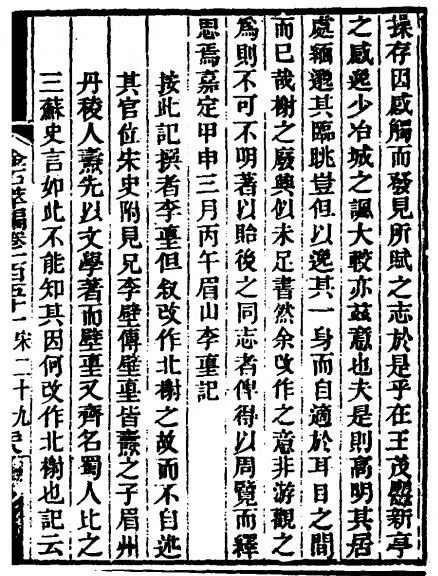 操存因感觸而發見所賦之志於是乎在王茂弘新亭
之感逸少冶城之諷大較亦茲意也夫是則高明其居
處緬邈其臨眺豈但以逸其一身而自適於耳目之間
而已哉榭之廢興似未足書然余改作之意非游觀之
為則不可不明著以貽後之同志者俾得以周覽而繹
思焉嘉定甲申三月丙午眉山李𡌴記
按此記撰者李𡌴但敘改作北榭之故而不自述
其官位宋史附見兄李壁傳壁𡌴皆燾之子眉州
丹稜人燾先以文學著而壁𡌴又齊名蜀人比之
三蘇史言如此不能知其因何改作北榭也記云
金石萃編卷一百五十一 宋二十九